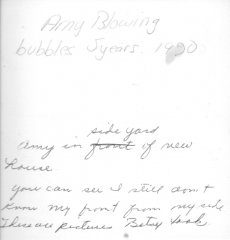 Amy Blowing
bubbles 5 years. 1980
side yard
Amy in front of new
house.
you can see I still don't
know my front from my side
These are pictures Betsy took